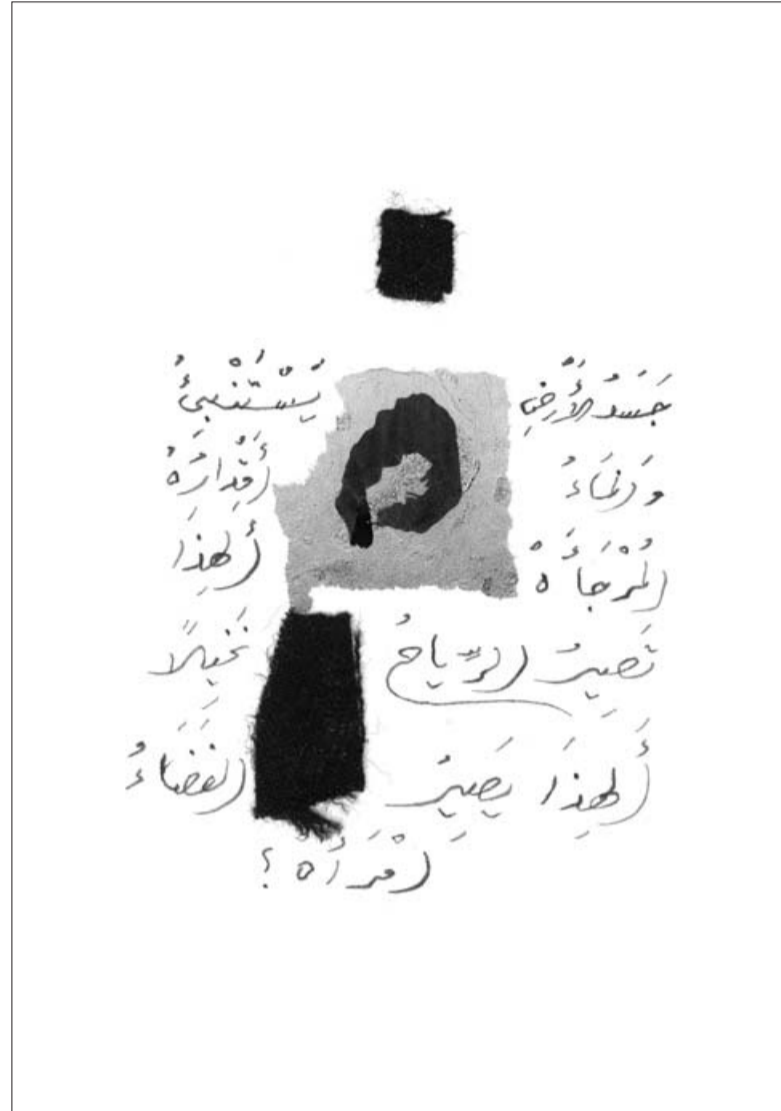 جَسَدُ الأَرْضِ يَسْتَنْبِئُ
وَالمَاءُ أَقْدَارَهُ
المُرْجَأَهْ أَلِهذَا
تَصِيرُ الرِّيَاحُ نَخِيلًا
أَلِهذَا يَصِيرُ الفَضَاءُ
امْرَأَهْ؟